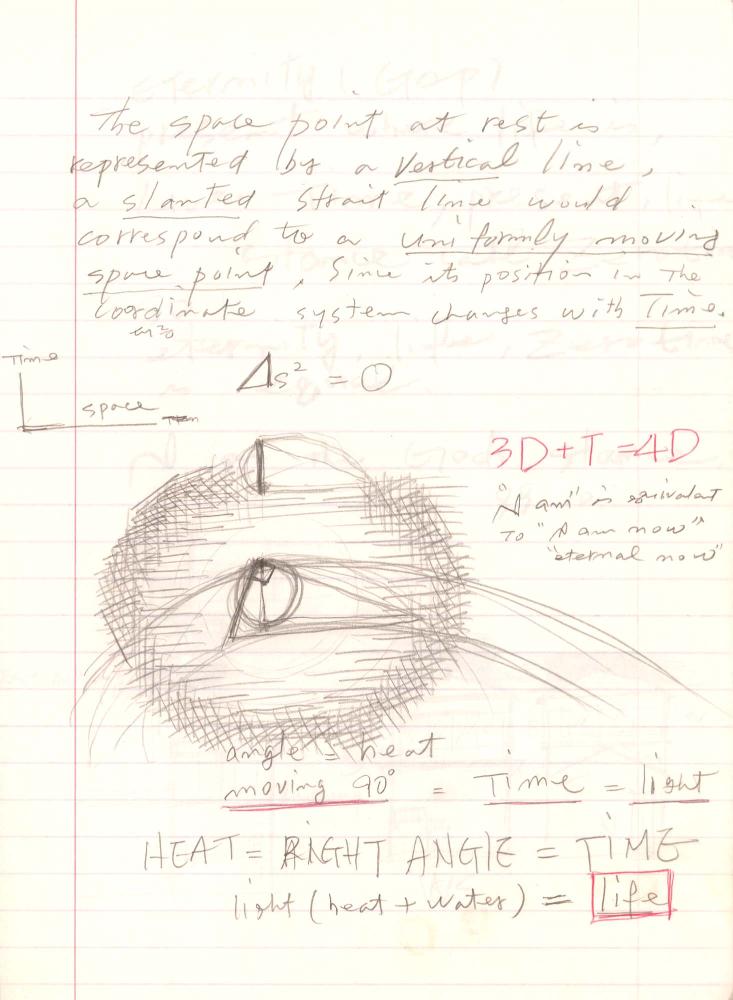 The space point at rest is
represented by a vertical line,
a slanted strait line would
correspond to a uniformly moving
space point, Since its position in The
Coordinate system changes with Time.
Time
Δs² = 0
space
3D+T=4D
"I am" is equivalent
To "I am now"
"eternal now"
angle = heat
moving 90° = Time = light
HEAT = RIGHT ANGLE = TIME
light (heat + water) = life